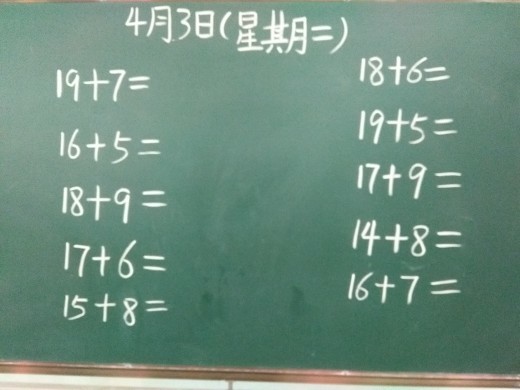 4月3日(星期二)
19+7=
16+5=
18+9=
17+6=
15+8=
18+6=
19+5=
17+9=
14+8=
16+7=